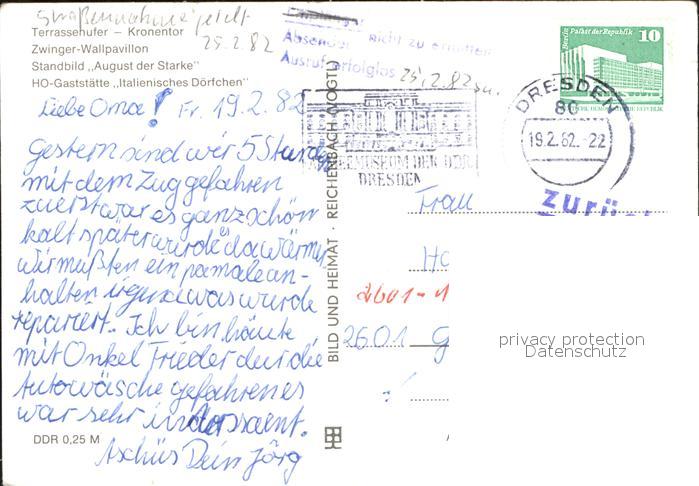 Straßenname fehlt
25.2.82
Terrassenufer – Kronentor
Zwinger-Wallpavillon
Standbild „August der Starke"
HO-Gaststätte „Italienisches Dörfchen"
Absender nicht zu ermitteln
Ausruf erfolglos 25.2.82
Berlin Palast der Republik 10
DRESDEN
80
19.2.82.-22
MUSEUM DER DDR
DRESDEN
zurü
Liebe Oma! Fr. 19.2.82
gestern sind wir 5 Stunden
mit dem Zug gefahren
zuerst war es ganz schön
kalt später wurde da wärmer
wir mußten ein pamale an-
halten irgend was wurde
repariert. Ich bin häute
mit Onkel Frieder durch die
Autowäsche gefahren es
war sehr intersaent.
Aschüs Dein Jörg
DDR 0,25 M
BILD UND HEIMAT · REICHENBACH (VOGTL)
Frau
Ho
2601-1
2601 G
privacy protection
Datenschutz